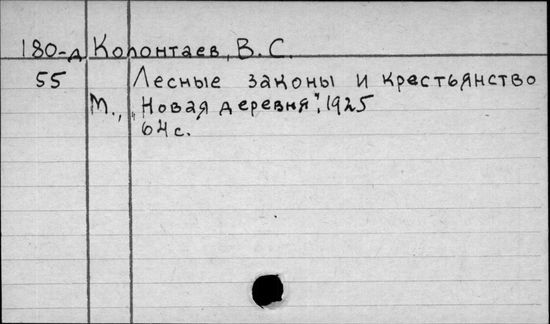 180-д Колонтаев, В. С.
55 Лесные законы и крестьянство
М., „Новая деревня", 1925
64 с.